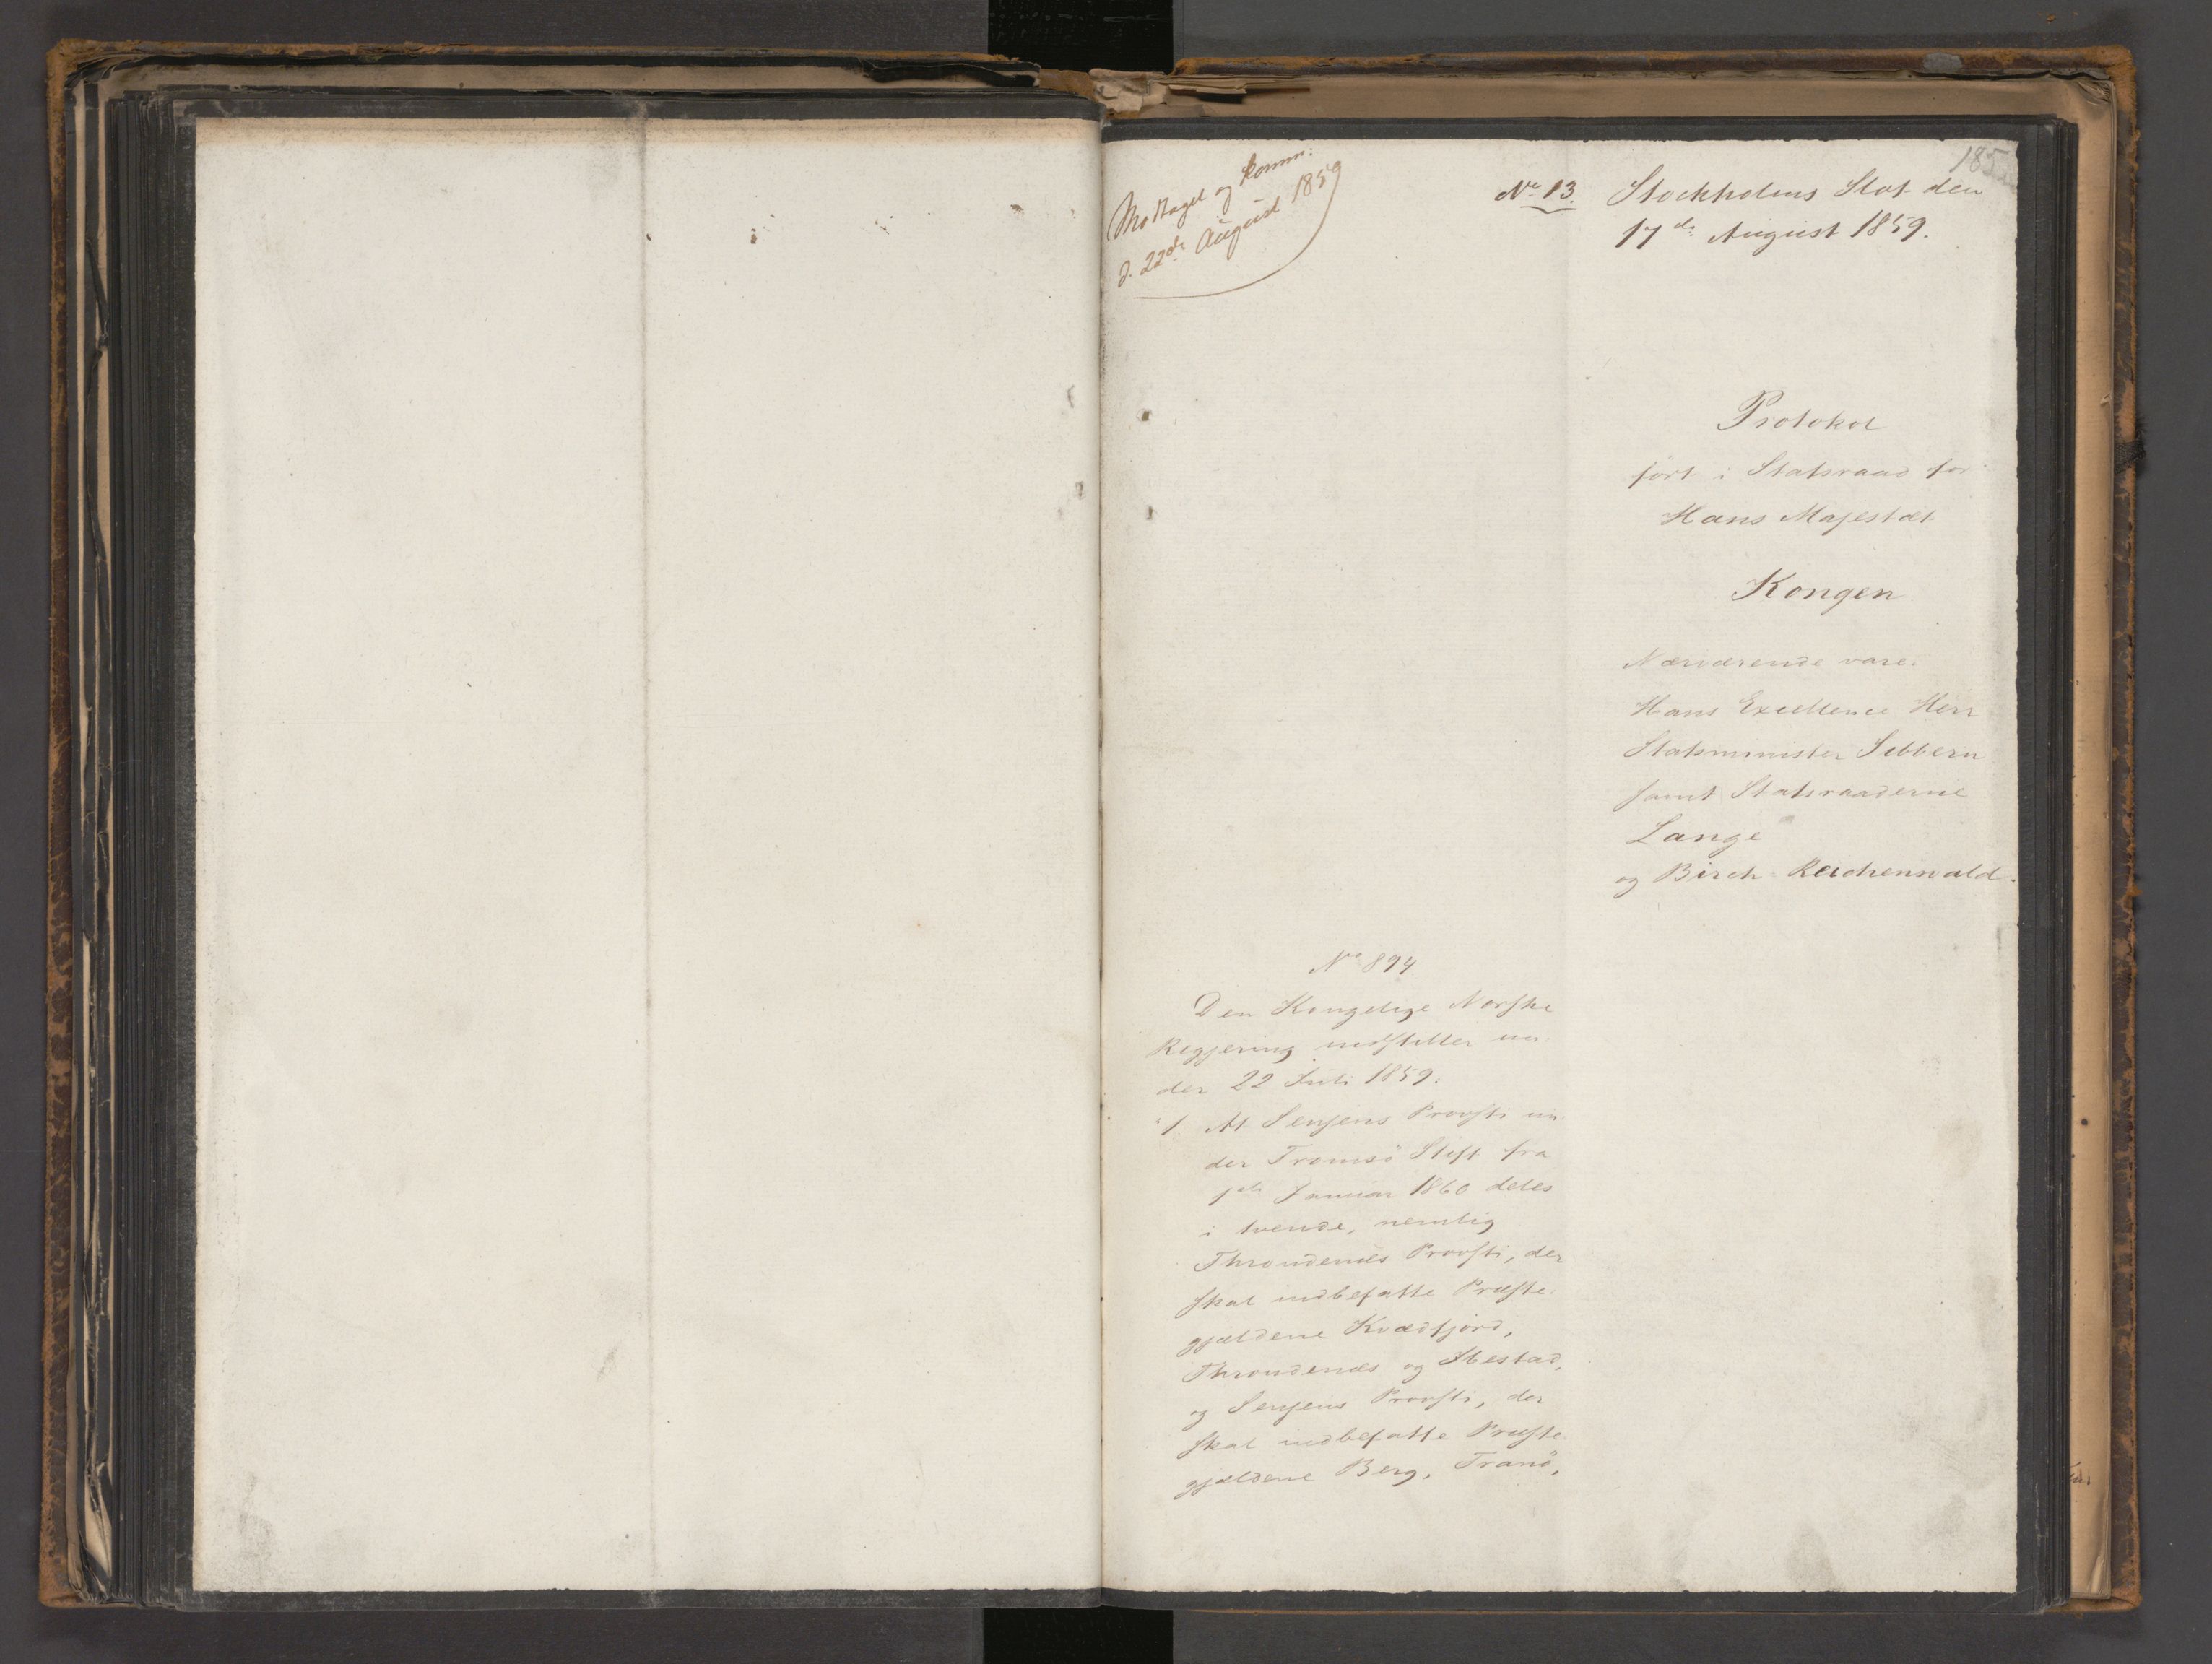 185
Modtaget og komm:
d. 22de August 1859
No 13. Stockholms Slot den
17de August 1859.
Protokol
ført i Statsraad for
Hans Majestæt
Kongen
Nærværende vare:
Hans Excellence Herr
Statsminister Sibbern
samt Statsraaderne
Lange
og Birch-Reichenwald.
No 894
Den Kongelige Norske
Regjering indstiller un-
der 22 Juli 1859:
"1. At Senjens Provsti un-
der Tromsö Stift fra
1ste Januar 1860 deles
i tvende, nemlig
Throndenæs Provsti, der
skal indbefatte Præste-
gjældene Kvædfjord,
Throndenæs og Ibestad,
og Senjens Provsti, der
skal indbefatte Præste-
gjældene Berg, Tranö,